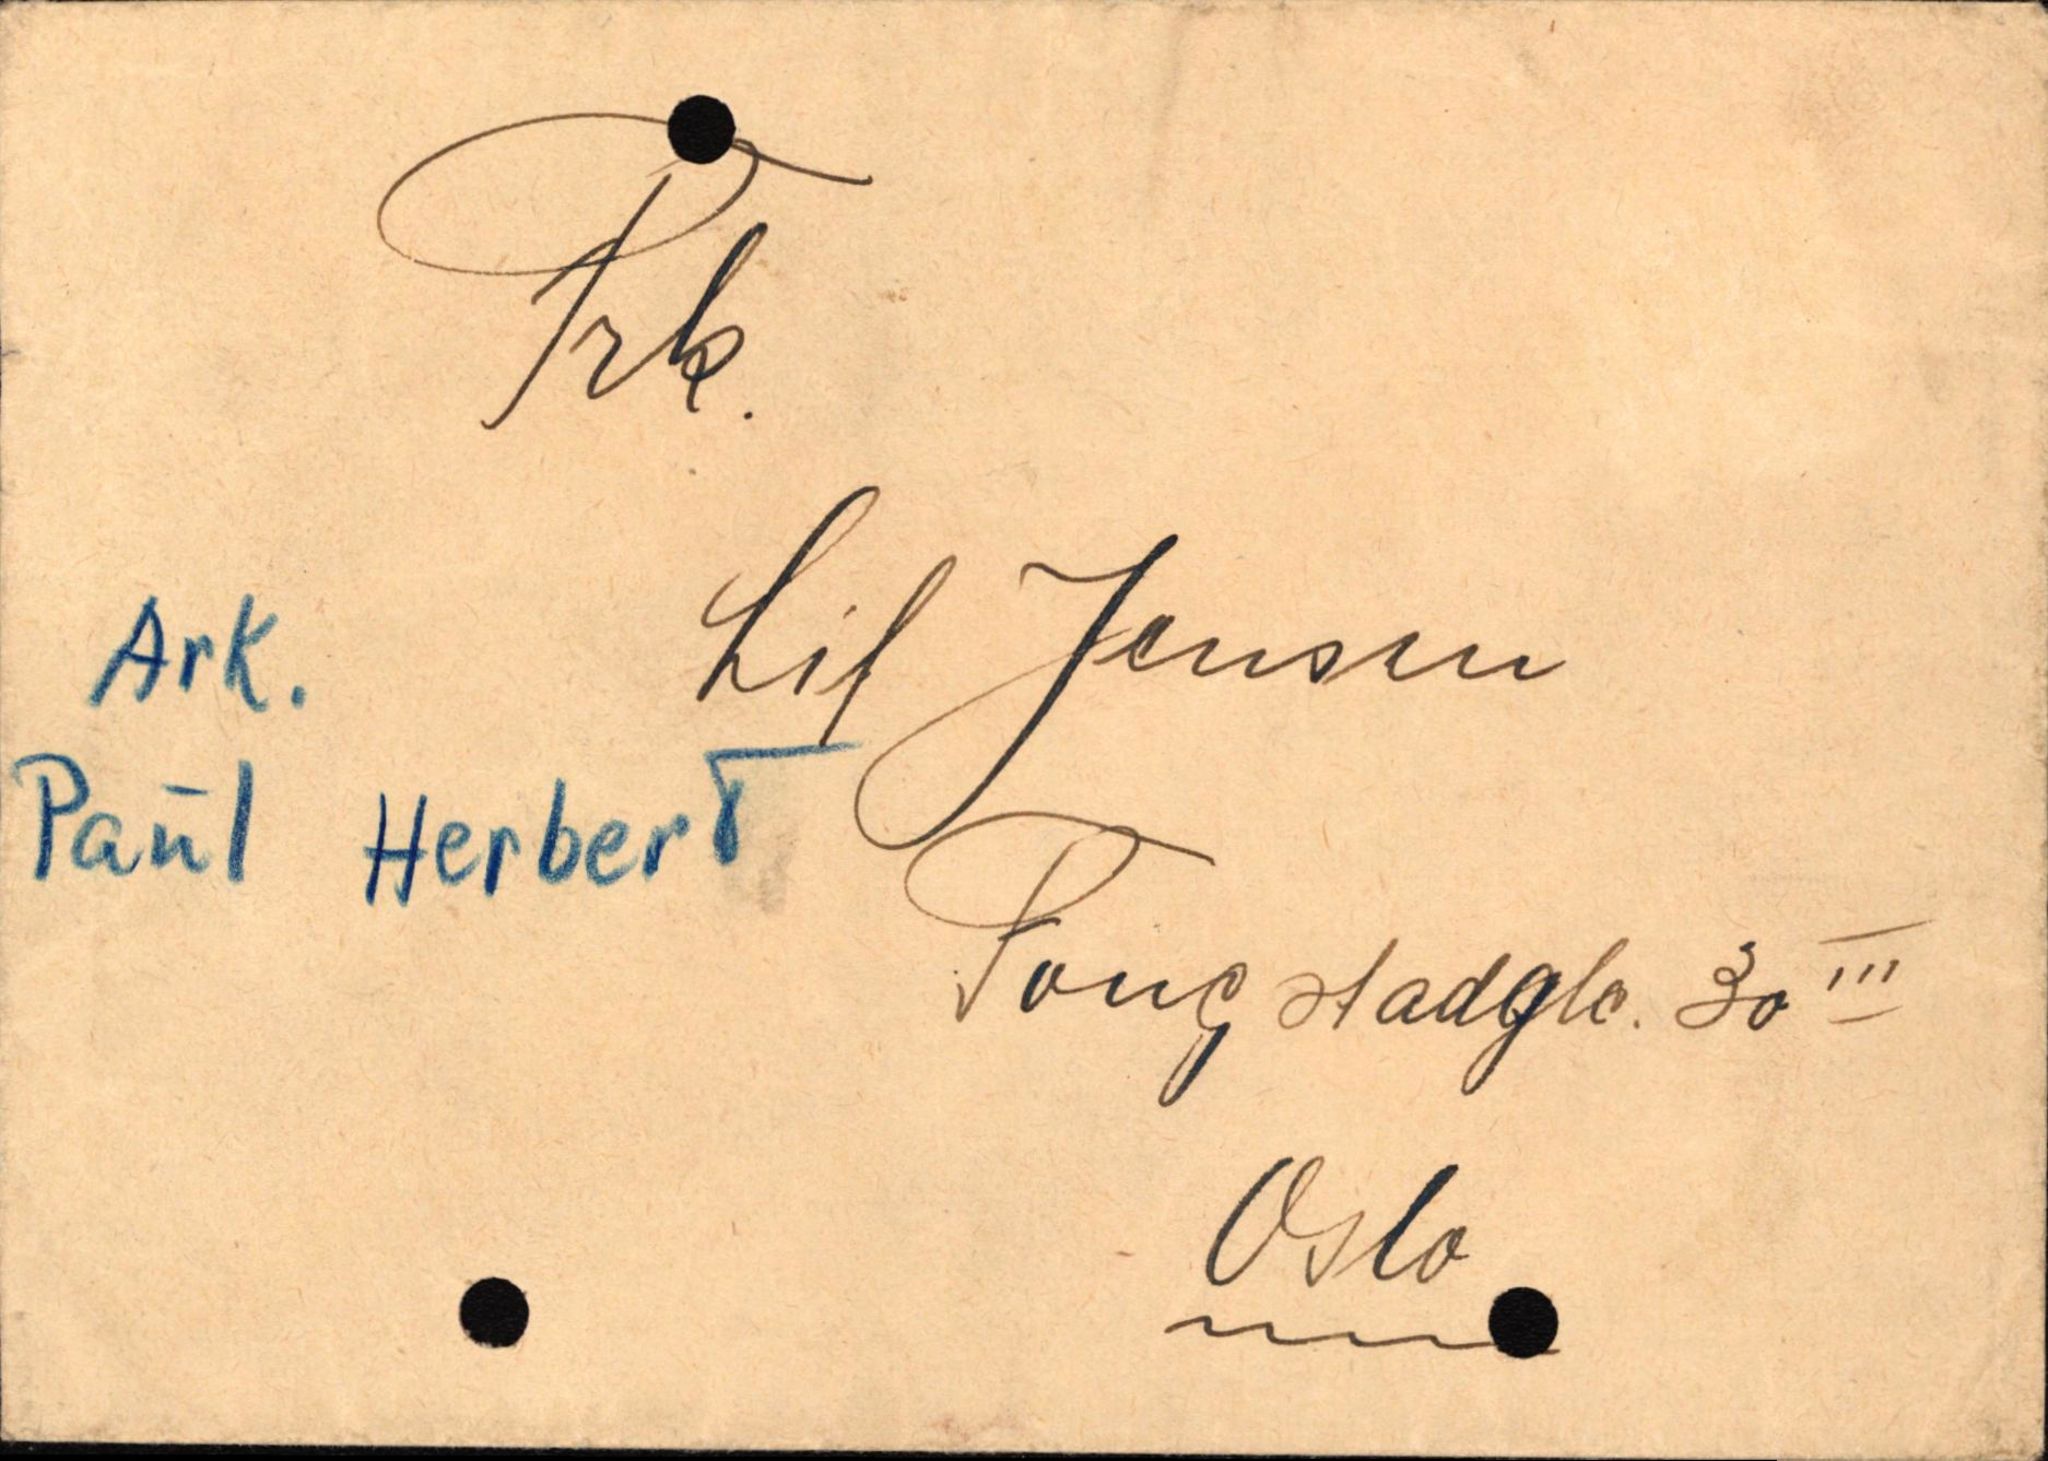 Frk.
Lif Jensen
Ark.
Paul Herbert
Fougstadgte. 30 III
Oslo